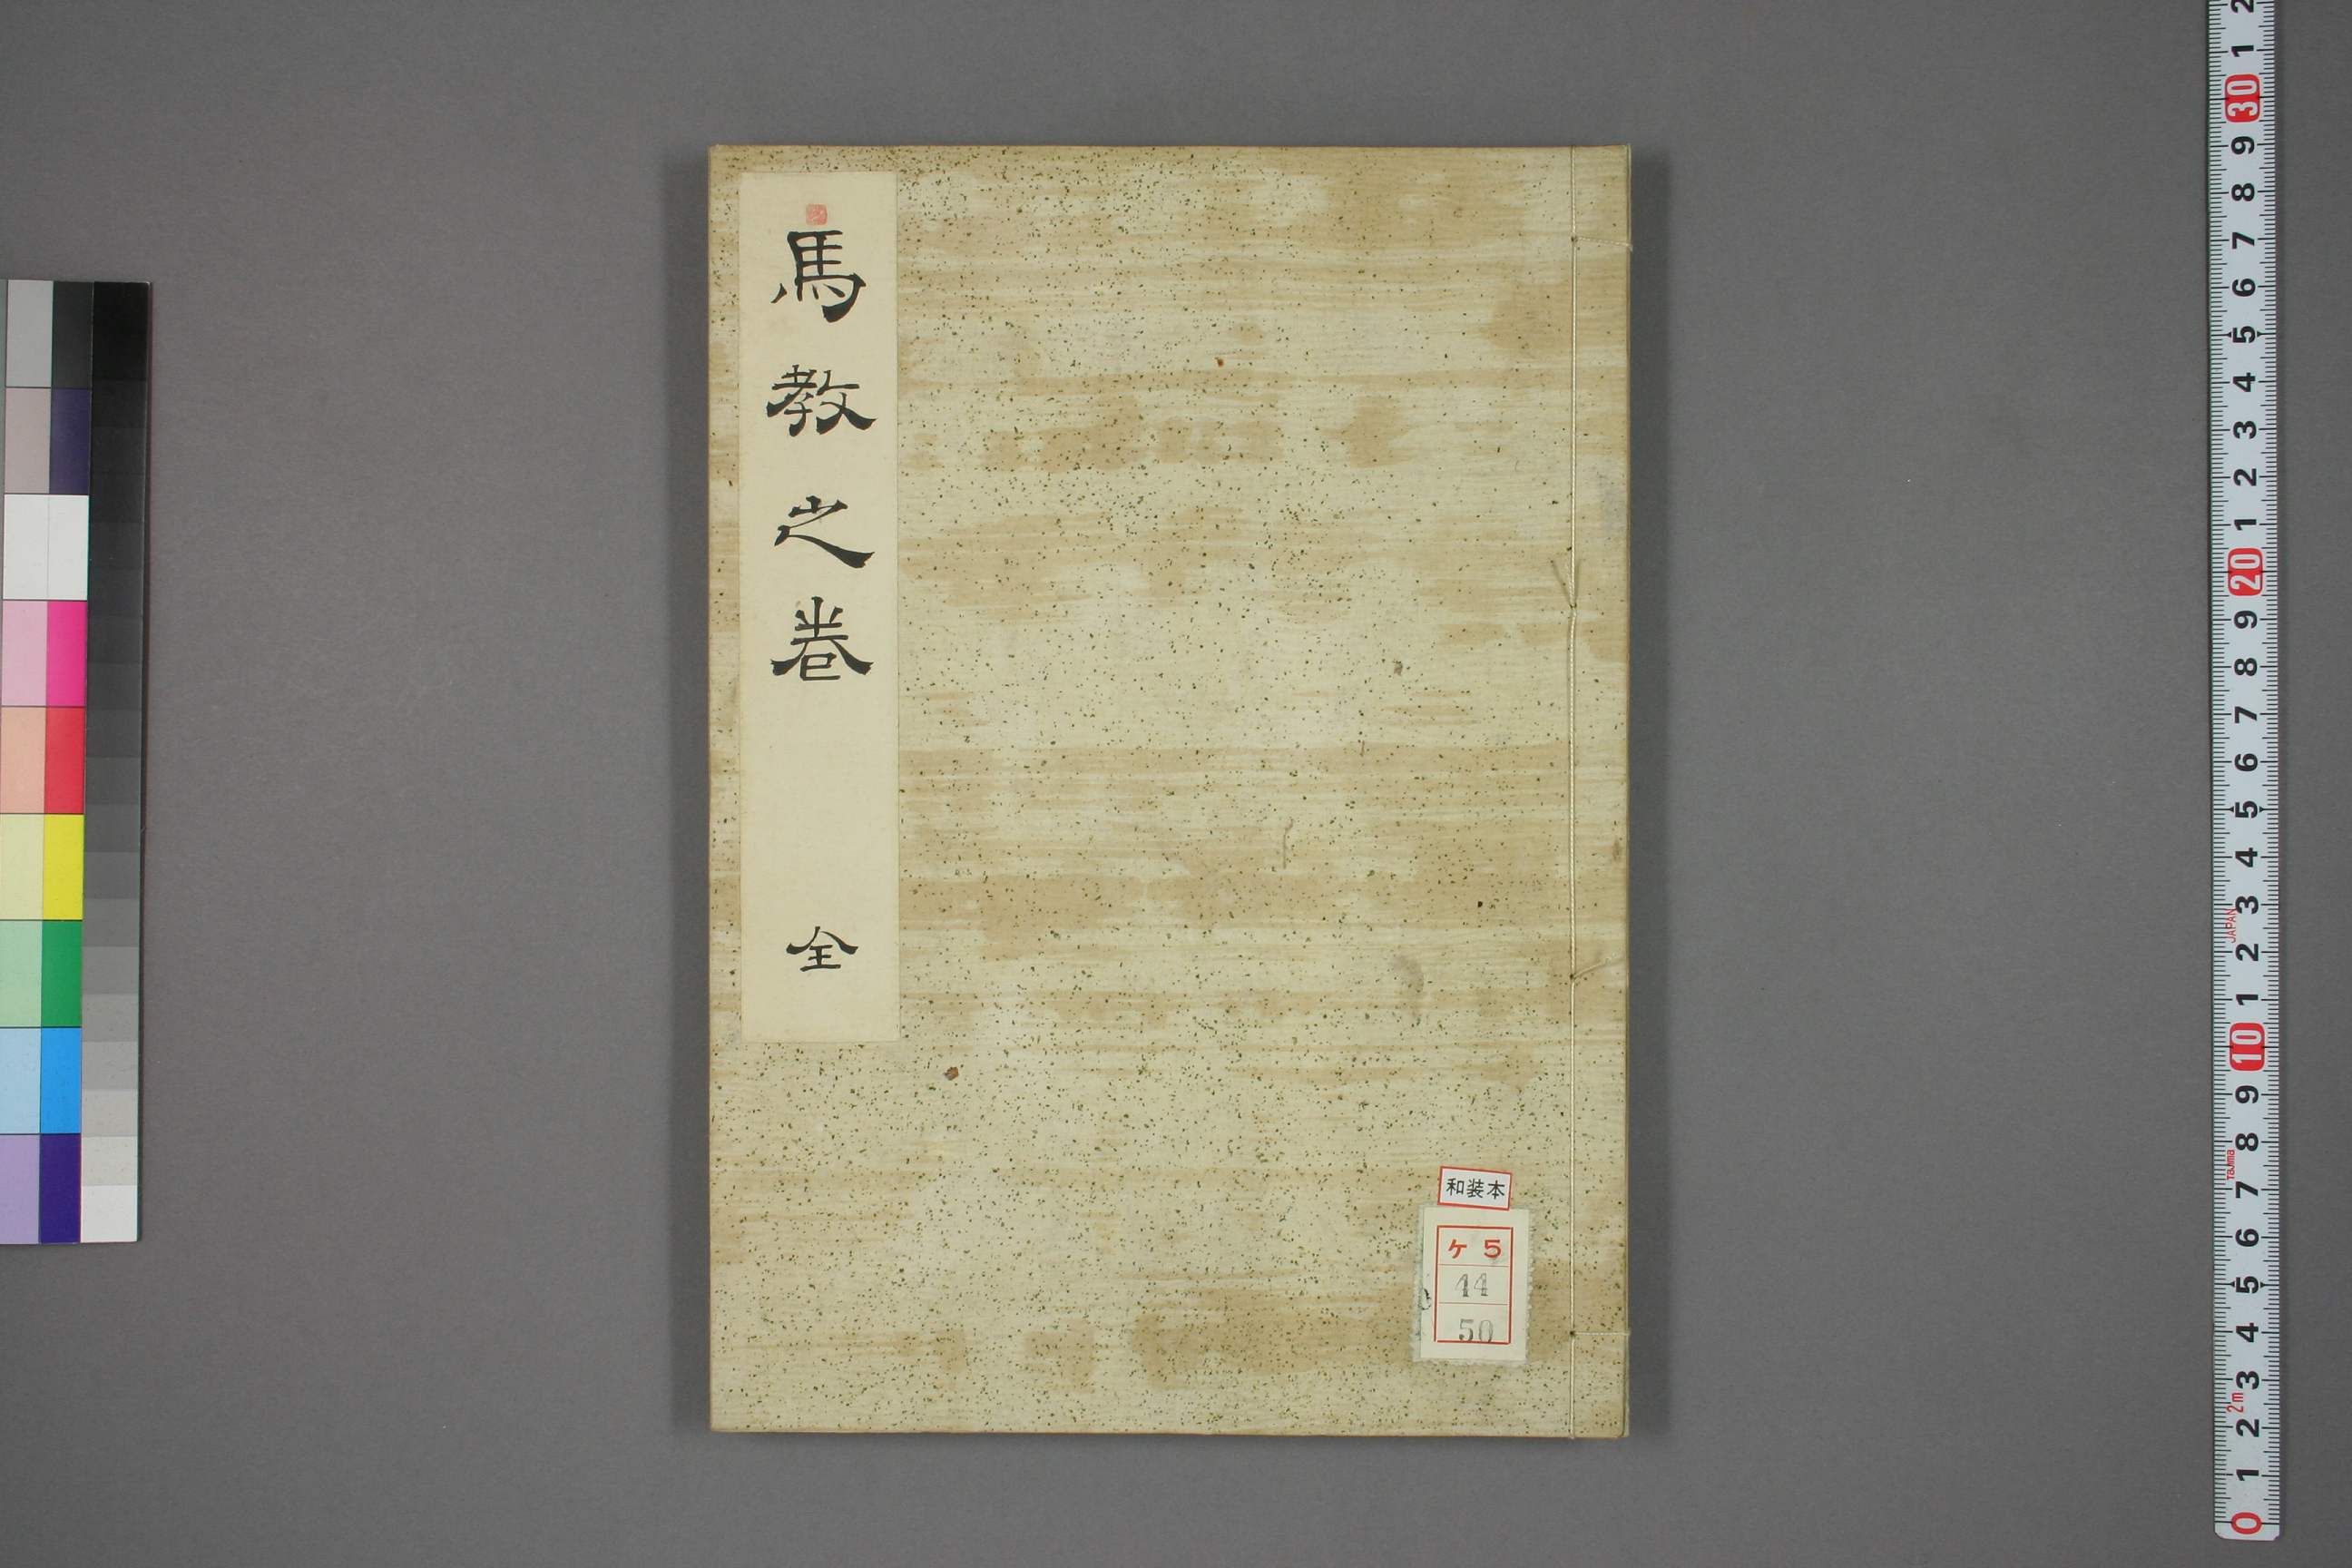 馬教之卷
全
和装本
ケ 5
44
50
2 1 30 9 8 7 6 5 4 3 2 1 20 9 8 7 6 5 4 3 2 1 10 9 8 7 6 5 4 3 2 1 0
JAPAN
Tajima
2m